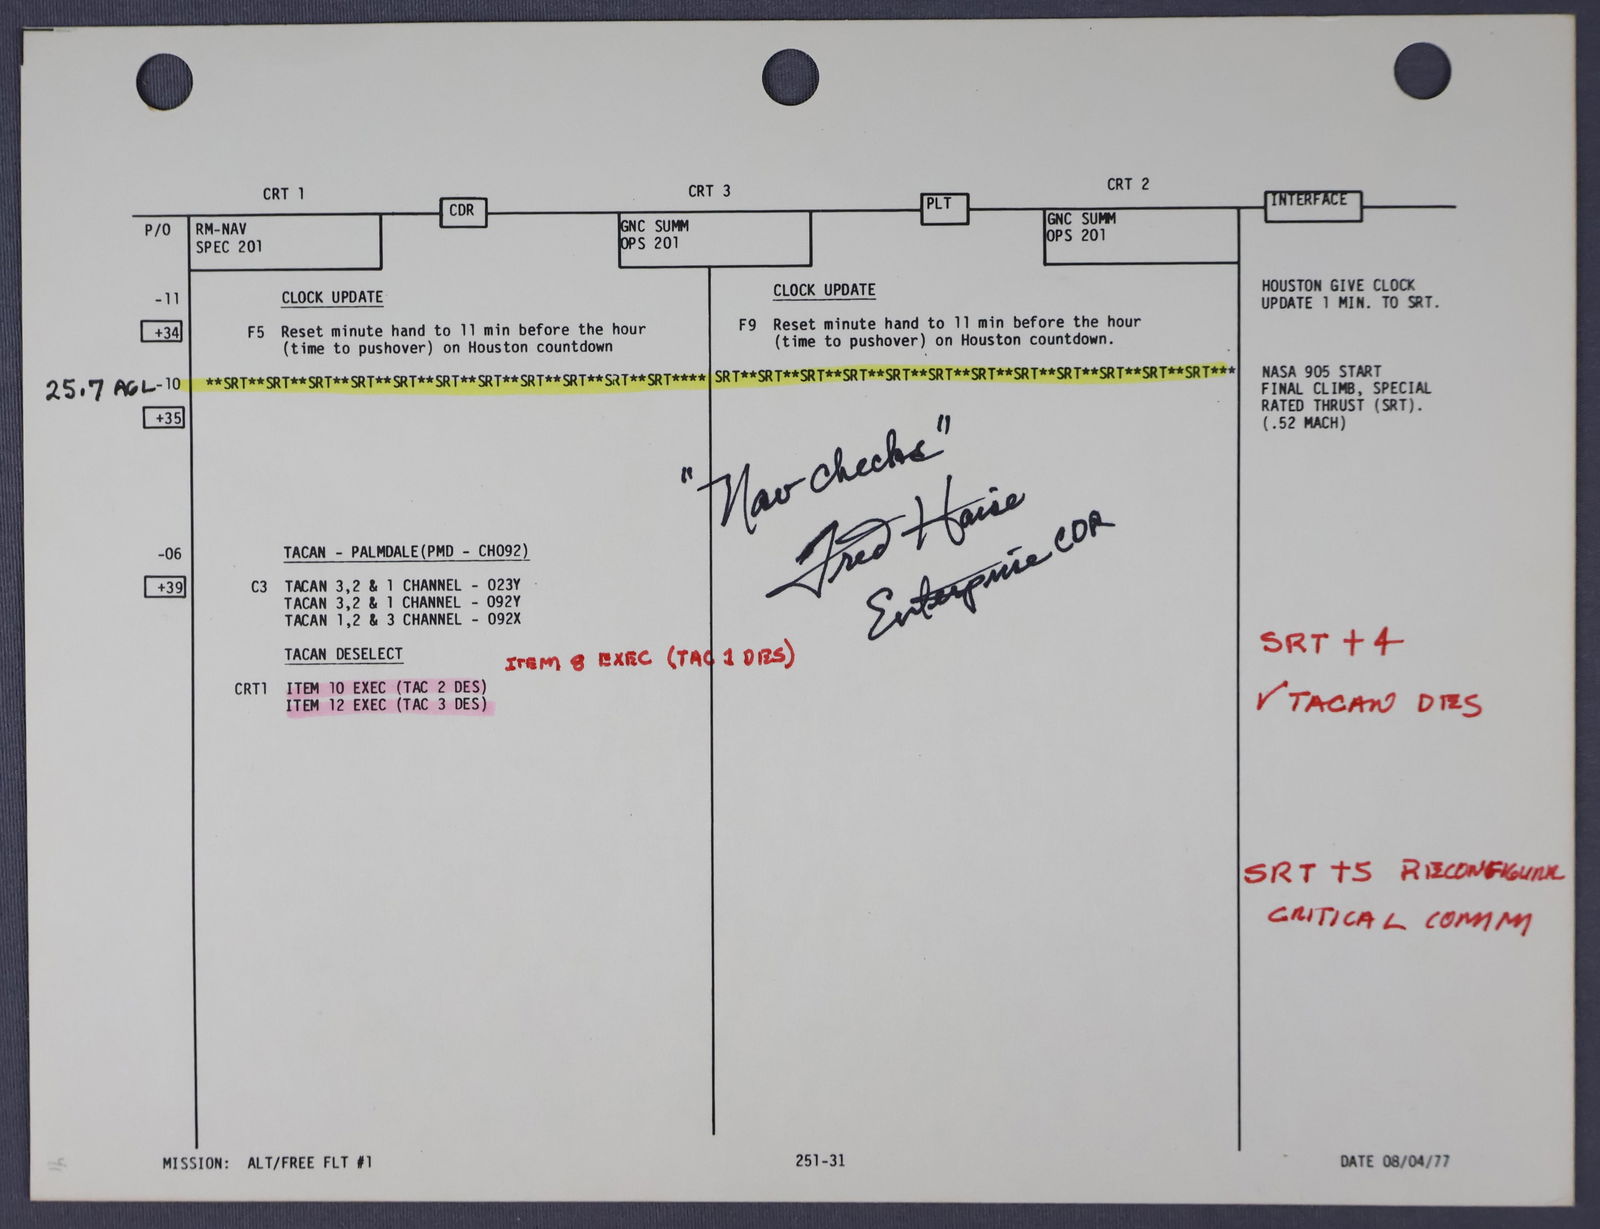 CRT 1 CRT 3 CRT 2
CDR PLT INTERFACE
P/O RM-NAV GNC SUMM GNC SUMM
SPEC 201 OPS 201 OPS 201
-11 CLOCK UPDATE CLOCK UPDATE HOUSTON GIVE CLOCK
UPDATE 1 MIN. TO SRT.
+34 F5 Reset minute hand to 11 min before the hour F9 Reset minute hand to 11 min before the hour
(time to pushover) on Houston countdown (time to pushover) on Houston countdown.
25.7 AGL -10 **SRT**SRT**SRT**SRT**SRT**SRT**SRT**SRT**SRT**SRT**SRT**** SRT**SRT**SRT**SRT**SRT**SRT**SRT**SRT**SRT**SRT**SRT**SRT*** NASA 905 START
FINAL CLIMB, SPECIAL
+35 RATED THRUST (SRT).
(.52 MACH)
"Nav checks"
Fred Haise
Enterprise CDR
-06 TACAN - PALMDALE(PMD - CH092)
+39 C3 TACAN 3,2 & 1 CHANNEL - 023Y
TACAN 3,2 & 1 CHANNEL - 092Y
TACAN 1,2 & 3 CHANNEL - 092X
TACAN DESELECT ITEM 8 EXEC (TAC 1 DES) SRT + 4
CRT1 ITEM 10 EXEC (TAC 2 DES) √ TACAN DES
ITEM 12 EXEC (TAC 3 DES)
SRT +5 RECONFIGURE
CRITICAL COMM
MISSION: ALT/FREE FLT #1 251-31 DATE 08/04/77